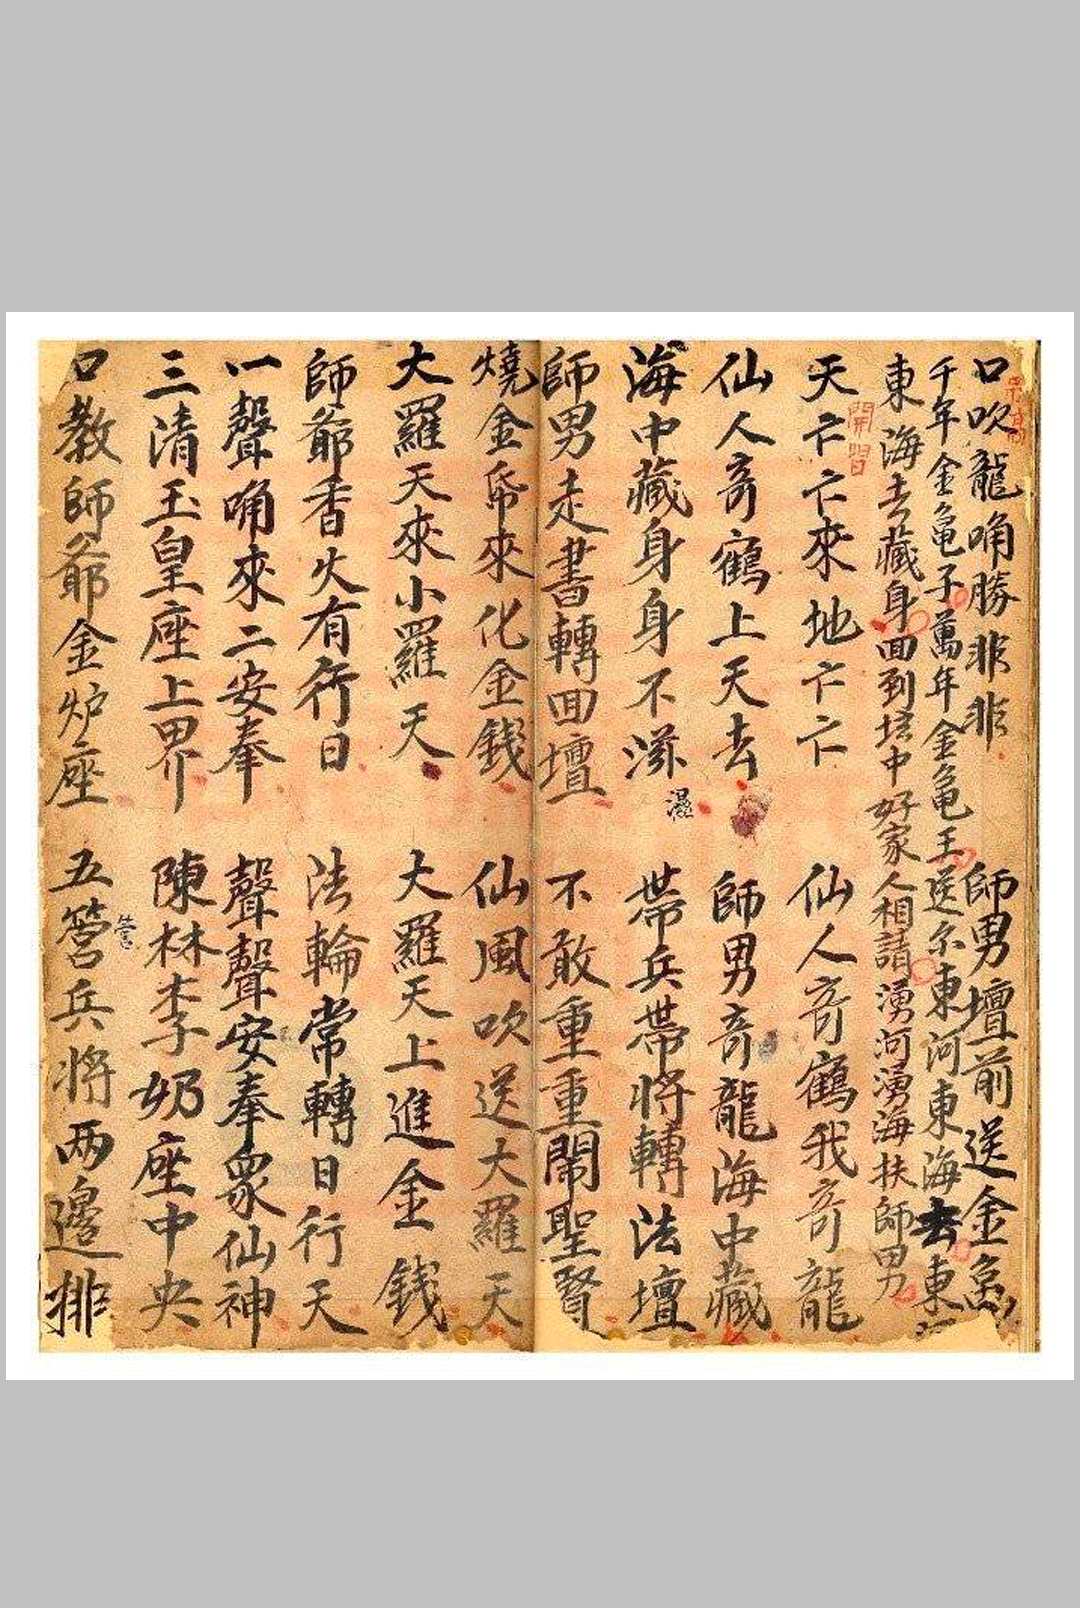 口吹龍唃勝非非 師男壇前送金
千年金亀子萬年金亀王送尔東河東海去東
東海去藏身回到坛中好家人相請湧河湧海扶師男
開習
天亡亡來地亡亡 仙人竒鶴我竒龍
仙人竒鶴上天去 師男竒龍海中藏
海中藏身身不滋 帯兵帯將轉法壇
濕
師男走書轉回壇 不敢重重鬧聖賢
燒金帋來化金錢 仙風吹送大羅天
大羅天來小羅天 大羅天上進金錢
師爺香火有行日 法輪常轉日行天
一聲唃來二安奉 聲聲安奉眾仙神
三清玉皇座上界 陳林李奶座中央
口教師爺金炉座 五營兵將两邊排
營